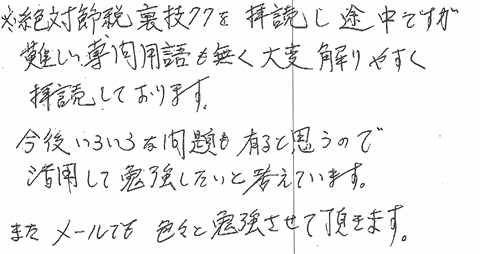 ※絶対節税裏技77を 拝読し 途中ですが
難しい専門用語も無く大変 解りやすく
拝読しております。
今後いろいろな問題も 有ると思うので
活用して勉強したいと考えています。
また メールでも 色々と勉強させて頂きます。